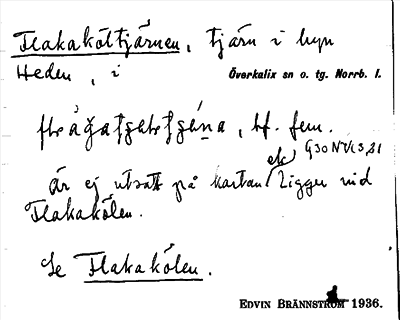 Flakaköltjärnen, tjärn i byn
Heden, i Överkalix sn o. tg. Norrb. l.
, bf. fem.
är ej utsatt på kartan ek G30NV 13,21 Ligger vid
Flakakölen.
Se Flakakölen.
EDVIN BRÄNNSTRÖM 1936.